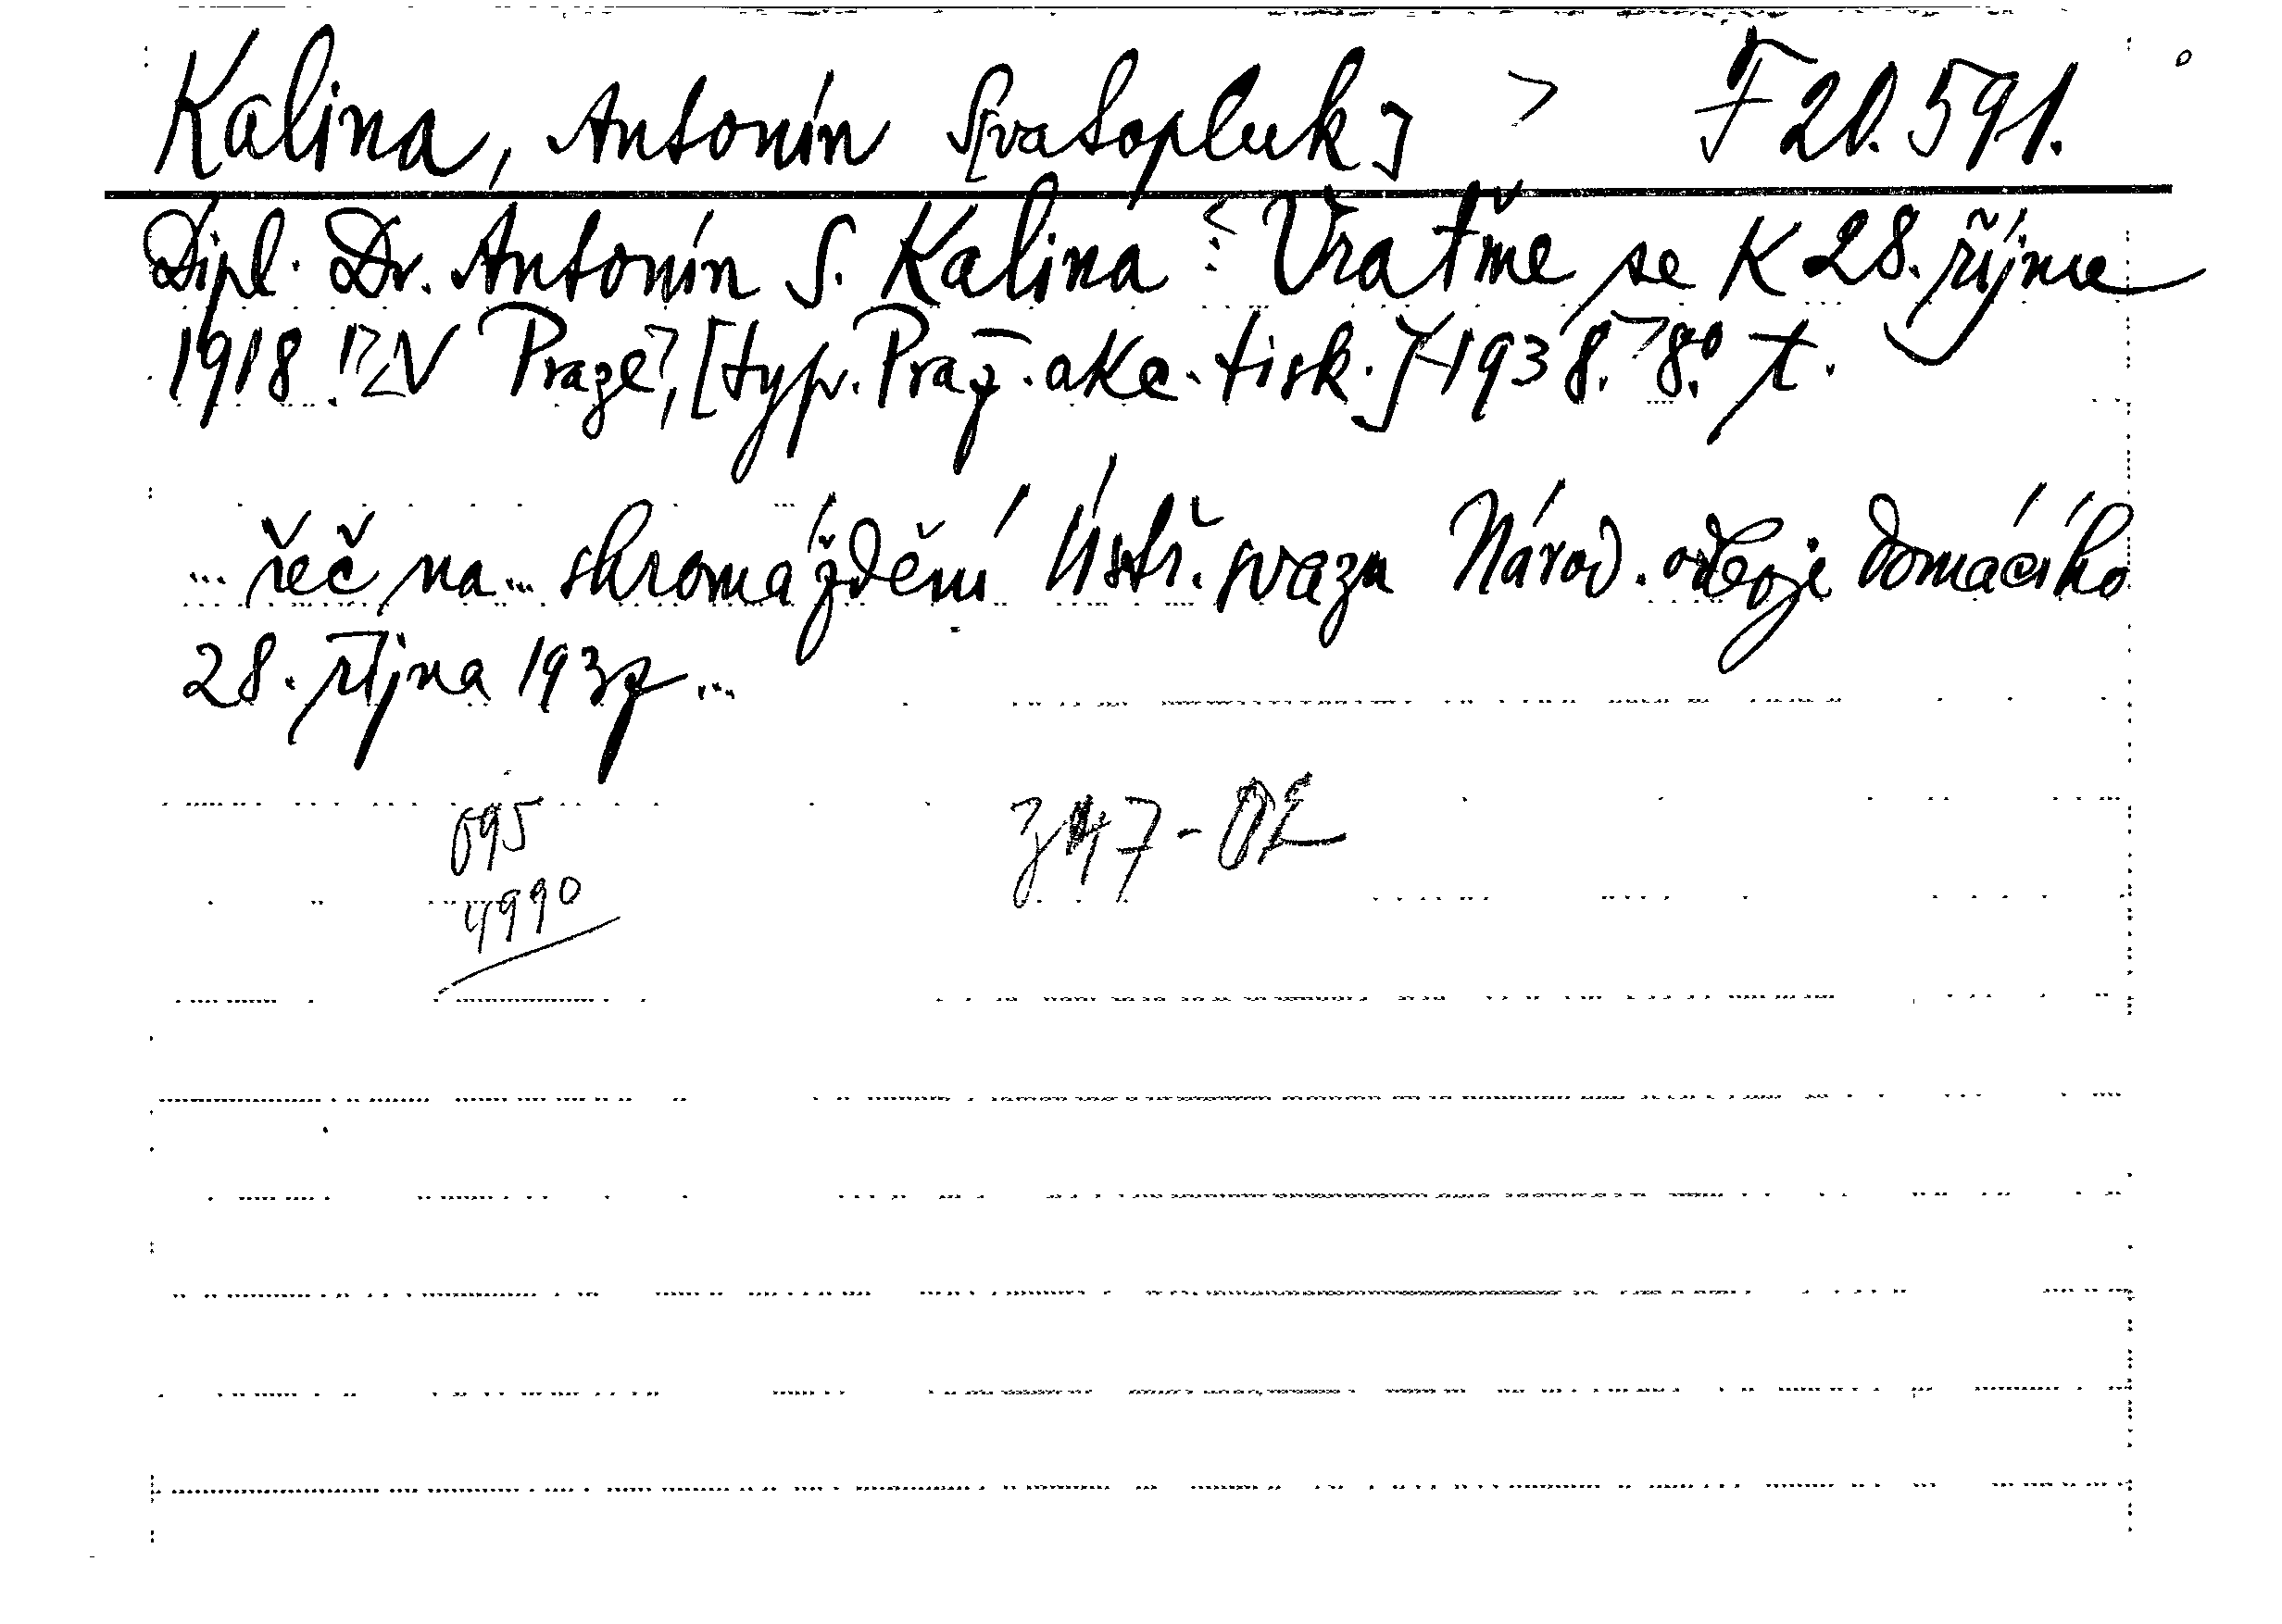 Kalina, Antonín S[vatopluk] > F 20.591.
Dipl. Dr. Antonín S. Kalina : Vraťme se k 28. říjnu
1918. V Praze, [typ. Praž. akc. tisk.] 1938. 8.° t.
... řeč na... shromáždění Ústř. svazu Národ. odboje domácího
28. října 1937 ...
695 347-02
4990